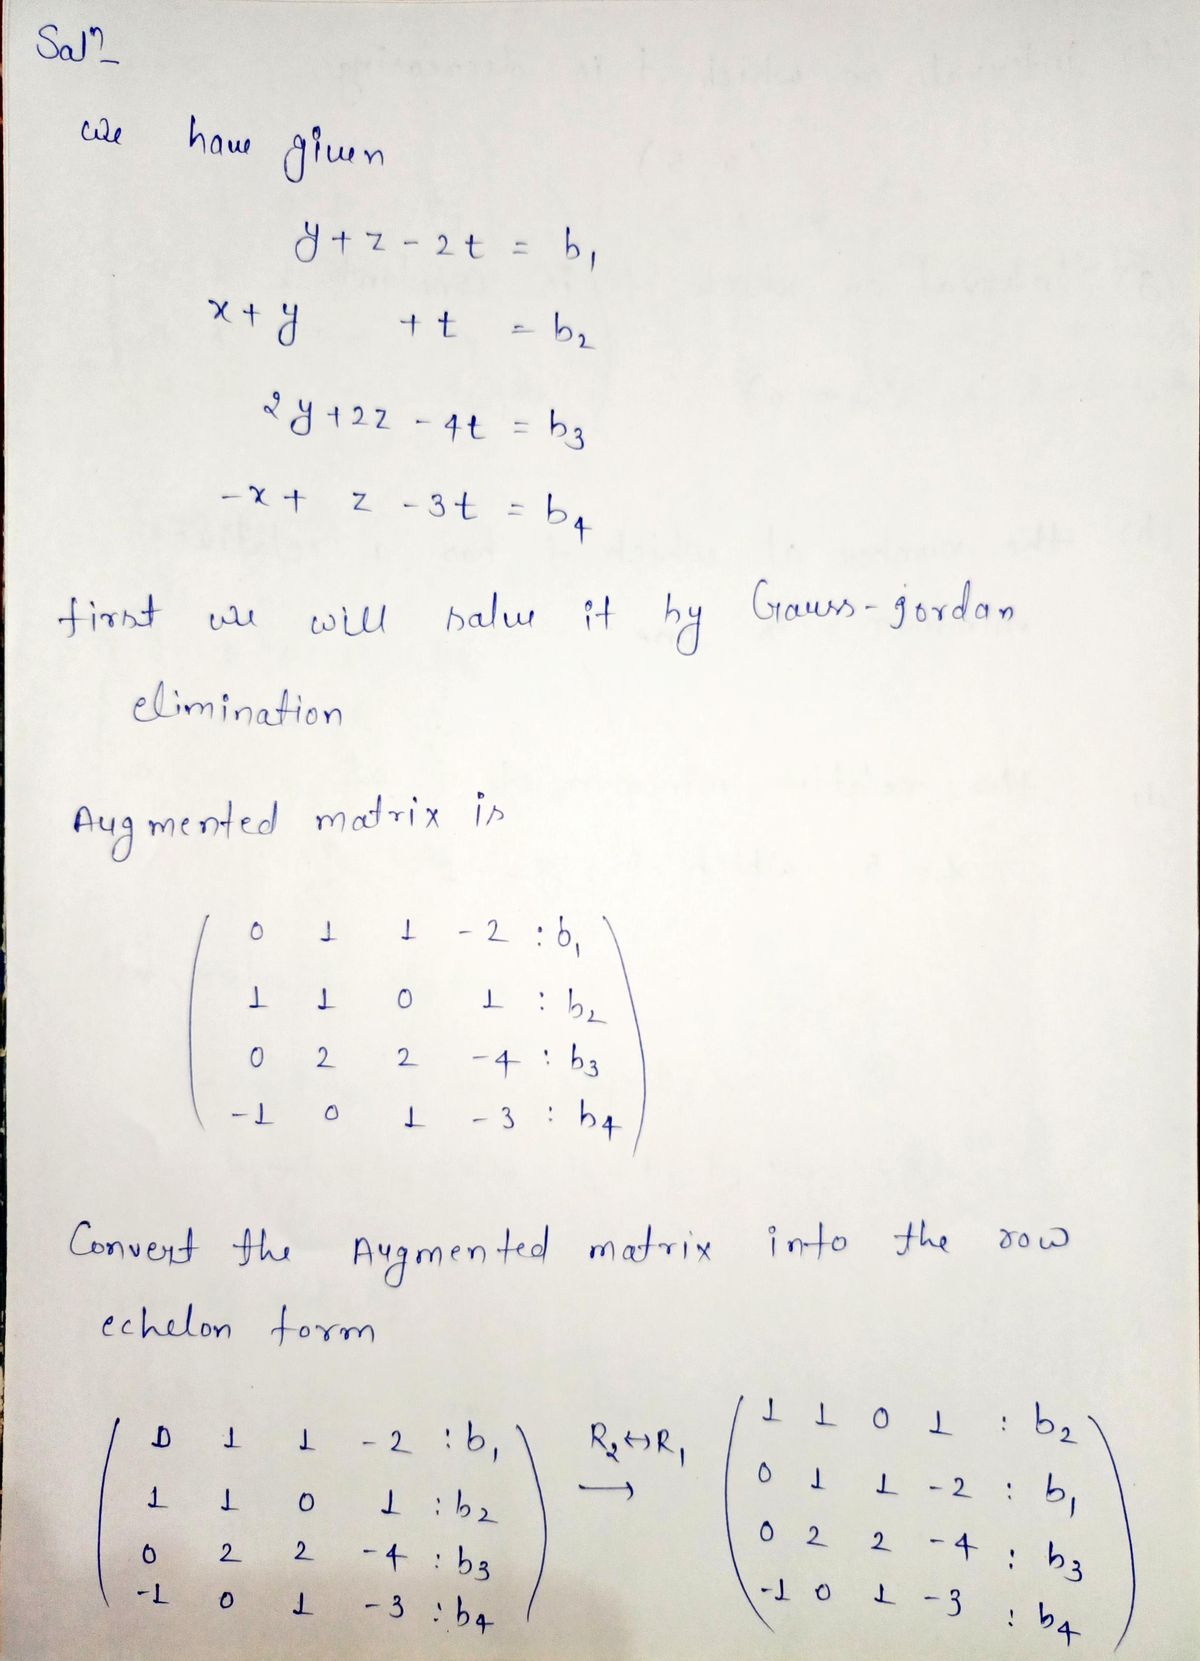 Solⁿ
we have given
y + z - 2t = b₁
x + y + t = b₂
2y + 2z - 4t = b₃
-x + z - 3t = b₄
first we will solve it by Gauss-jordan
elimination
Augmented matrix is
0 1 1 -2 : b₁
1 1 0 1 : b₂
0 2 2 -4 : b₃
-1 0 1 -3 : b₄
Convert the Augmented matrix into the row
echelon form
0 1 1 -2 : b₁ R₂↔R₁ 1 1 0 1 : b₂
1 1 0 1 : b₂ → 0 1 1 -2 : b₁
0 2 2 -4 : b₃ 0 2 2 -4 : b₃
-1 0 1 -3 : b₄ -1 0 1 -3 : b₄